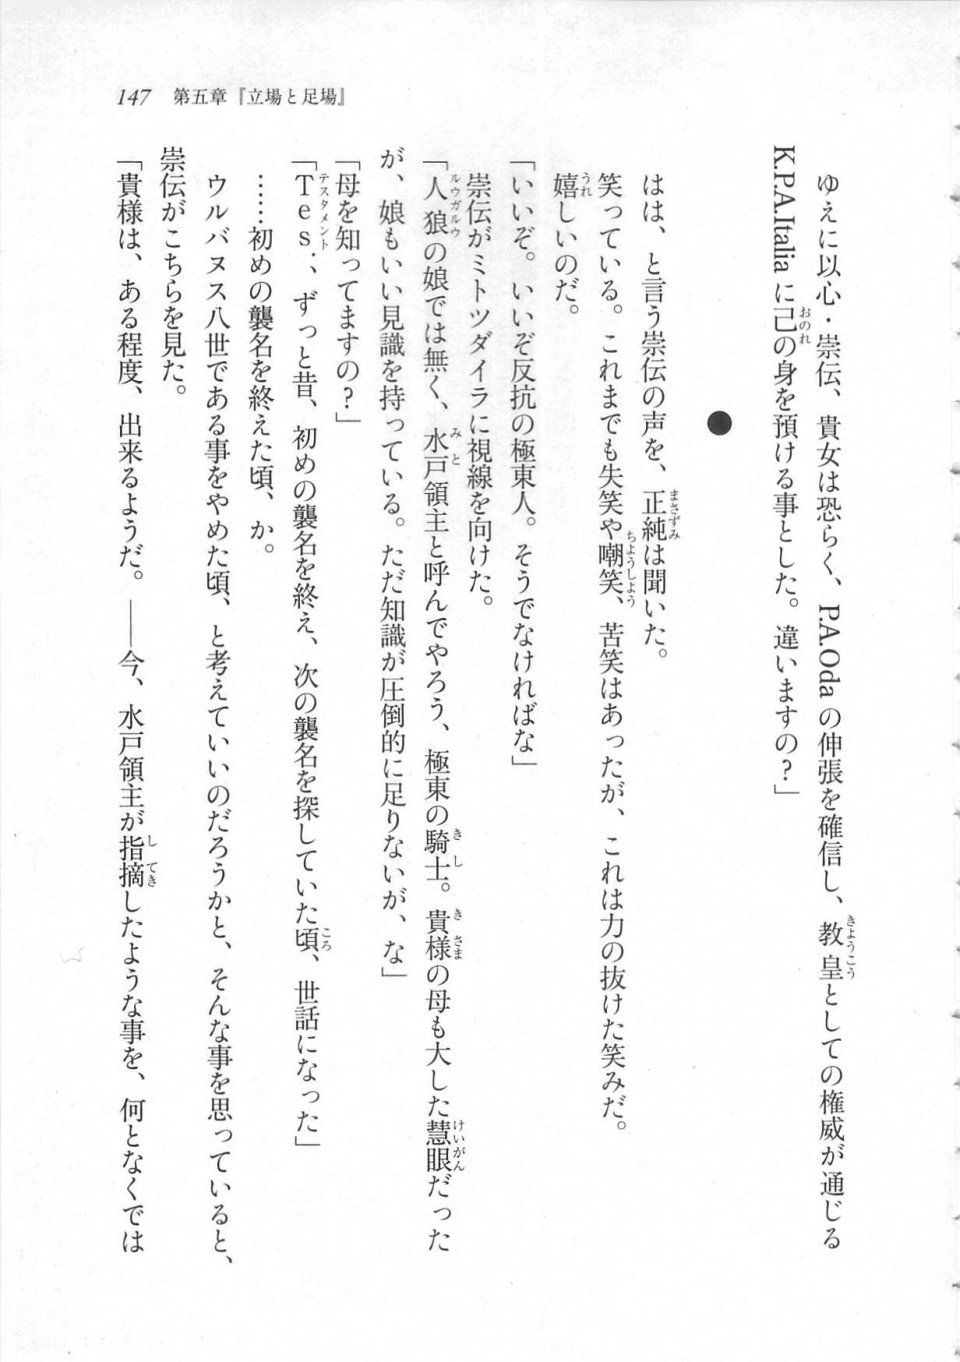 147 第五章『立場と足場』
ゆえに以心・崇伝、貴女は恐らく、P.A.Odaの伸張を確信し、教皇としての権威が通じる
K.P.A.Italiaに己の身を預ける事とした。違いますの？」
●
はは、と言う崇伝の声を、正純は聞いた。
笑っている。これまでも失笑や嘲笑、苦笑はあったが、これは力の抜けた笑みだ。
嬉しいのだ。
「いいぞ。いいぞ反抗の極東人。そうでなければな」
崇伝がミトツダイラに視線を向けた。
「人狼の娘では無く、水戸領主と呼んでやろう、極東の騎士。貴様の母も大した慧眼だった
が、娘もいい見識を持っている。ただ知識が圧倒的に足りないが、な」
「母を知ってますの？」
「Tes.、ずっと昔、初めの襲名を終え、次の襲名を探していた頃、世話になった」
……初めの襲名を終えた頃、か。
ウルバヌス八世である事をやめた頃、と考えていいのだろうかと、そんな事を思っていると、
崇伝がこちらを見た。
「貴様は、ある程度、出来るようだ。――今、水戸領主が指摘したような事を、何となくでは